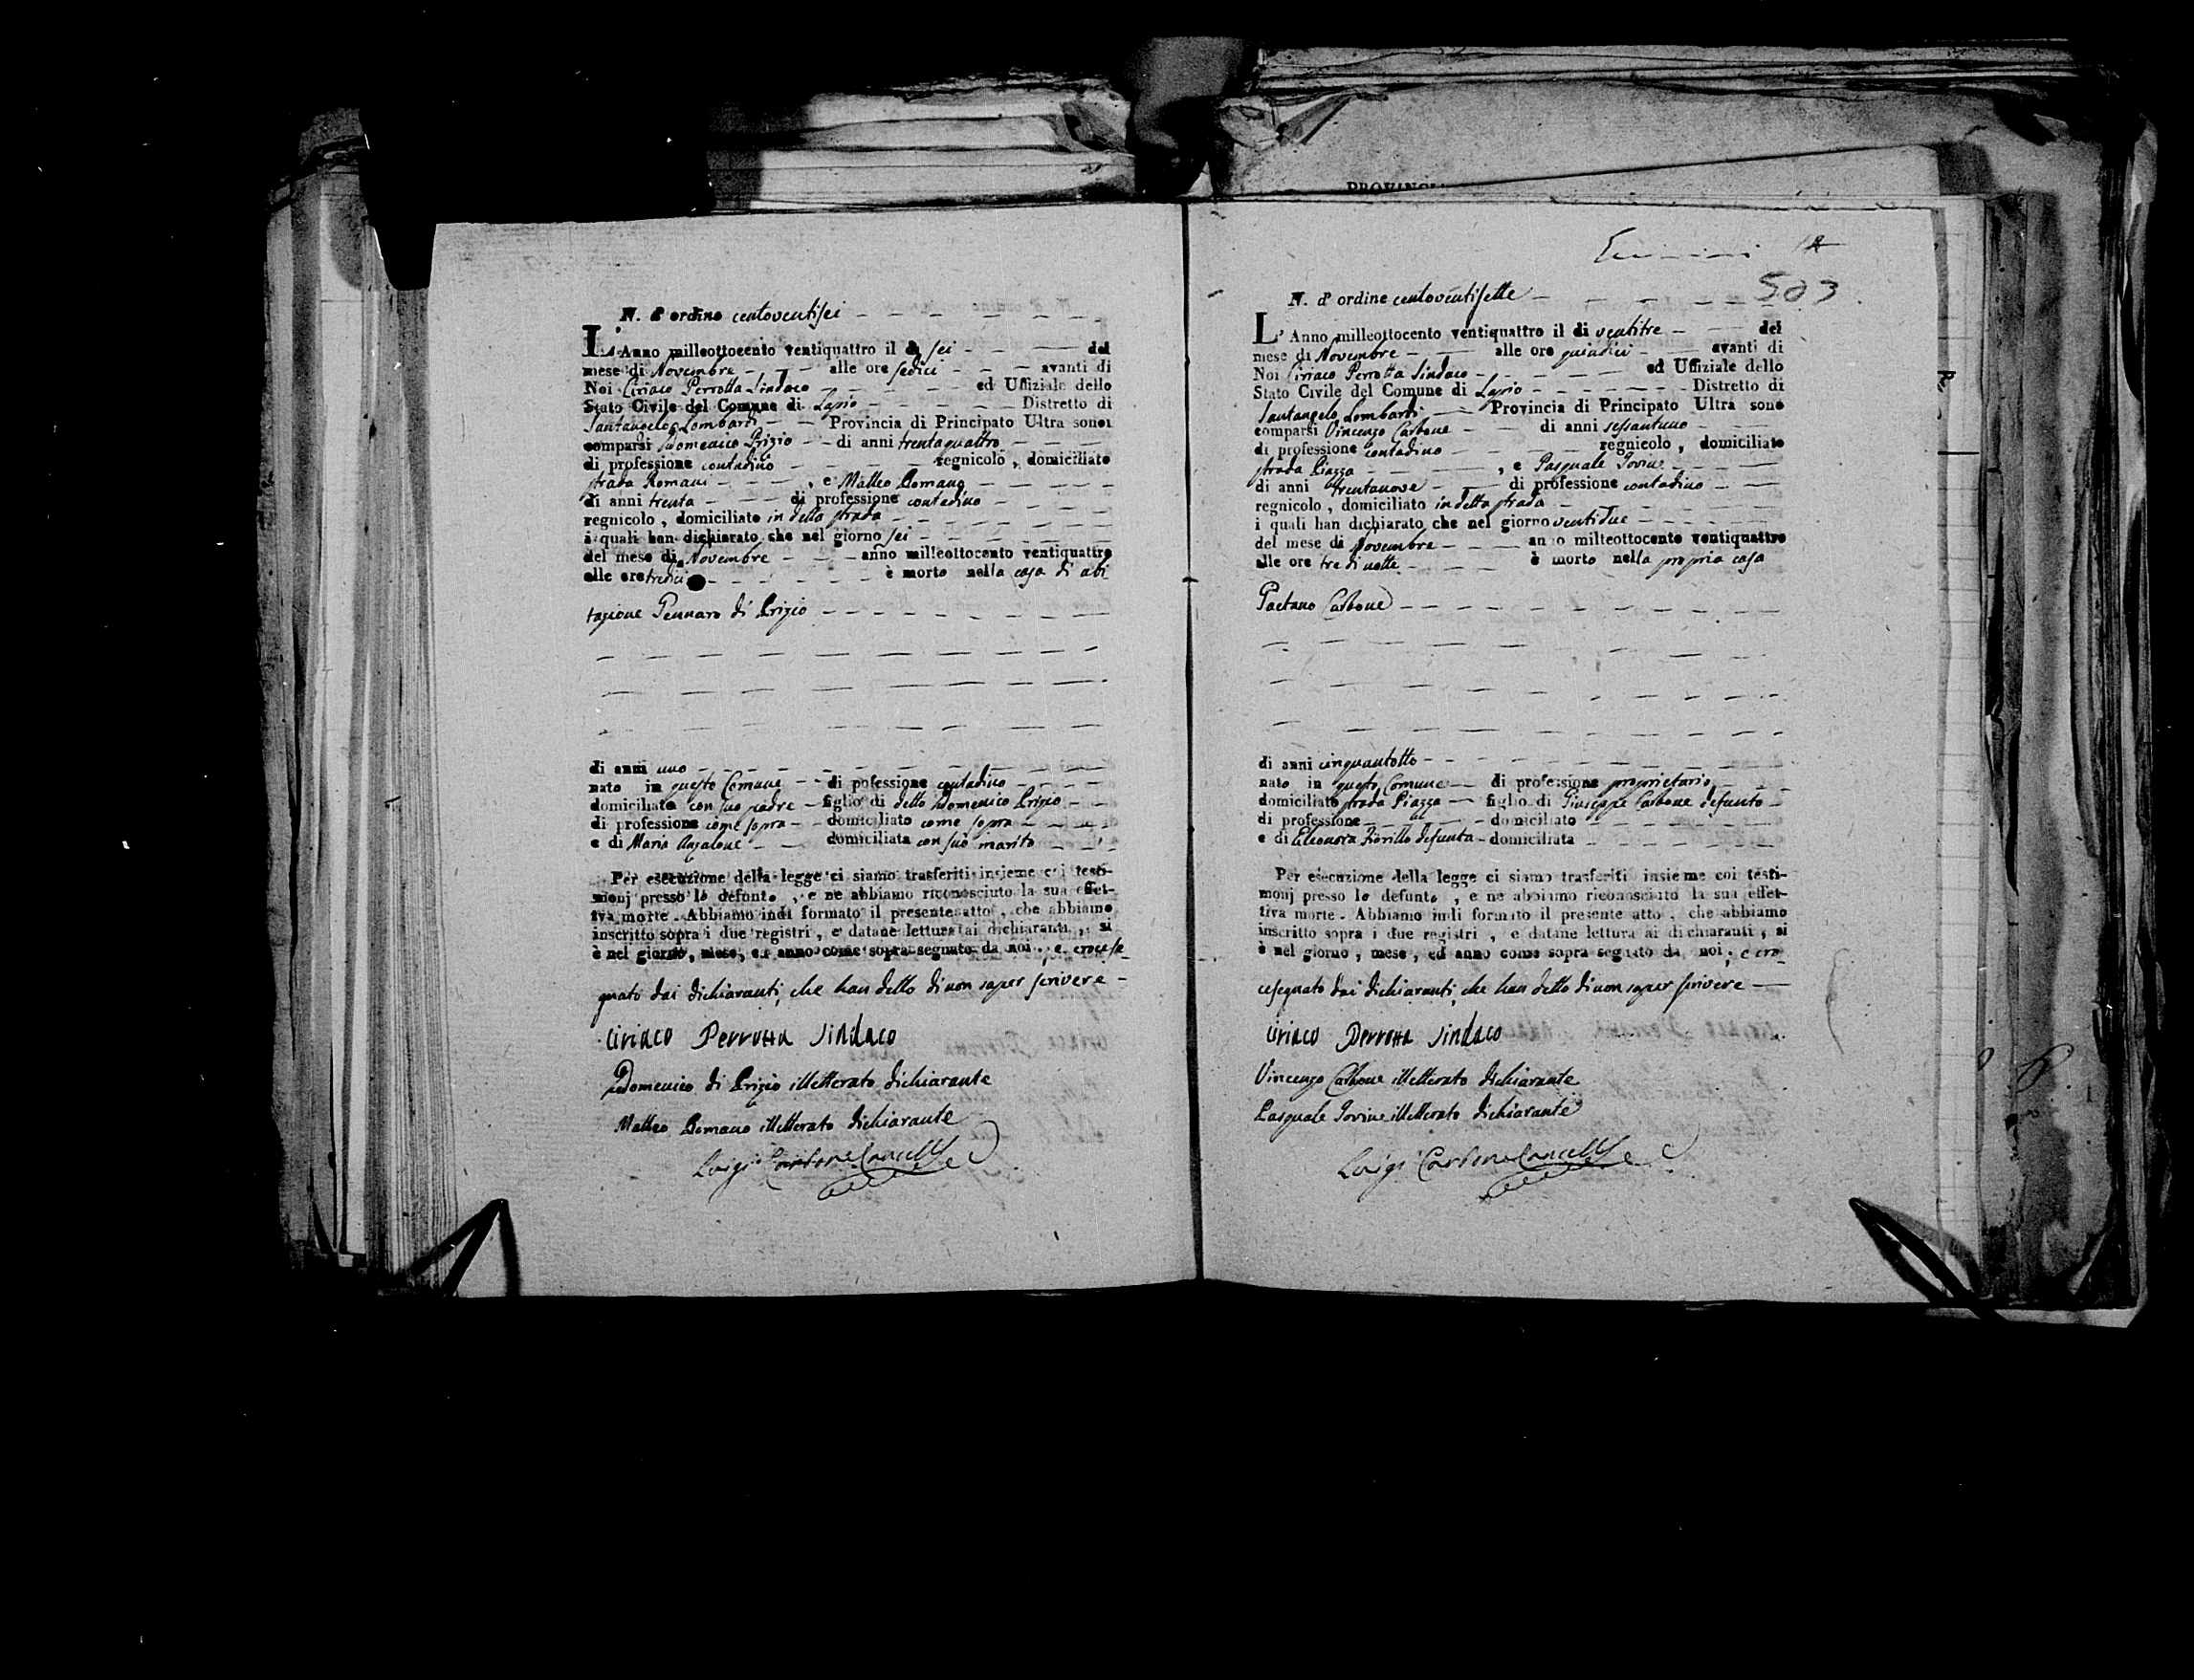 PROVINCI
N. d' ordine centoventisei
L' Anno milleottocento ventiquattro il dì sei del
mese di Novembre alle ore sedici avanti di
Noi Ciriaco Perrotta Sindaco ed Uffiziale dello
Stato Civile del Comune di Lapio Distretto di
Santangelo Lombardi Provincia di Principato Ultra sono
comparsi Domenico Prizio di anni trentaquattro
di professione contadino regnicolo , domiciliato
strada Romani , e Matteo Romano
di anni trenta di professione contadino
regnicolo , domiciliato in detta strada
i quali han dichiarato che nel giorno sei
del mese di Novembre anno milleottocento ventiquattro
alle ore tredici è morto nella casa di abi
tazione Gennaro di Prizio
di anni uno
nato in questo Comune di pofessione contadino
domiciliato con suo padre figlio di detto Domenico Prizio
di professione come sopra domiciliato come sopra
e di Maria Anzalone domiciliata con suo marito
Per esecuzione della legge ci siamo trasferiti insieme coi testi-
monj presso lo defunto , e ne abbiamo riconosciuto la sua effet-
tiva morte . Abbiamo indi formato il presente atto , che abbiamo
inscritto sopra i due registri , e datane lettura ai dichiaranti , si
è nel giorno , mese , ed anno come sopra segnato da noi , e crocese
gnato dai dichiaranti, che han detto di non saper scrivere
Ciriaco Perrotta Sindaco
Domenico di Prizio illetterato dichiarante
Matteo Romano illetterato dichiarante
Luigi Carbone Cancell
503
N. d' ordine centoventisette
L' Anno milleottocento ventiquattro il dì ventitre del
mese di Novembre alle ore quindici avanti di
Noi Ciriaco Perrotta Sindaco ed Uffiziale dello
Stato Civile del Comune di Lapio Distretto di
Santangelo Lombardi Provincia di Principato Ultra sono
comparsi Vincenzo Carbone di anni sessantuno
di professione contadino regnicolo , domiciliato
strada Piazza , e Pasquale Iovine
di anni trentanove di professione contadino
regnicolo , domiciliato in detta strada
i quali han dichiarato che nel giorno ventidue
del mese di Novembre anno milleottocento ventiquattro
alle ore tre di notte è morto nella propria casa
Gaetano Carbone
di anni cinquantotto
nato in questo Comune di professione proprietario
domiciliato strada Piazza figlio di Giuseppe Carbone defunto
di professione domiciliato
e di Eleonora Fiorillo defunta domiciliata
Per esecuzione della legge ci siamo trasferiti insieme coi testi-
monj presso lo defunto , e ne abbiamo riconosciuto la sua effet-
tiva morte . Abbiamo indi formato il presente atto , che abbiamo
inscritto sopra i due registri , e datane lettura ai dichiaranti , si
è nel giorno , mese , ed anno come sopra segnato da noi , e cro
cesegnato dai dichiaranti, che han detto di non saper scrivere
Ciriaco Perrotta Sindaco
Vincenzo Carbone illetterato dichiarante
Pasquale Iovine illetterato dichiarante
Luigi Carbone Cancell